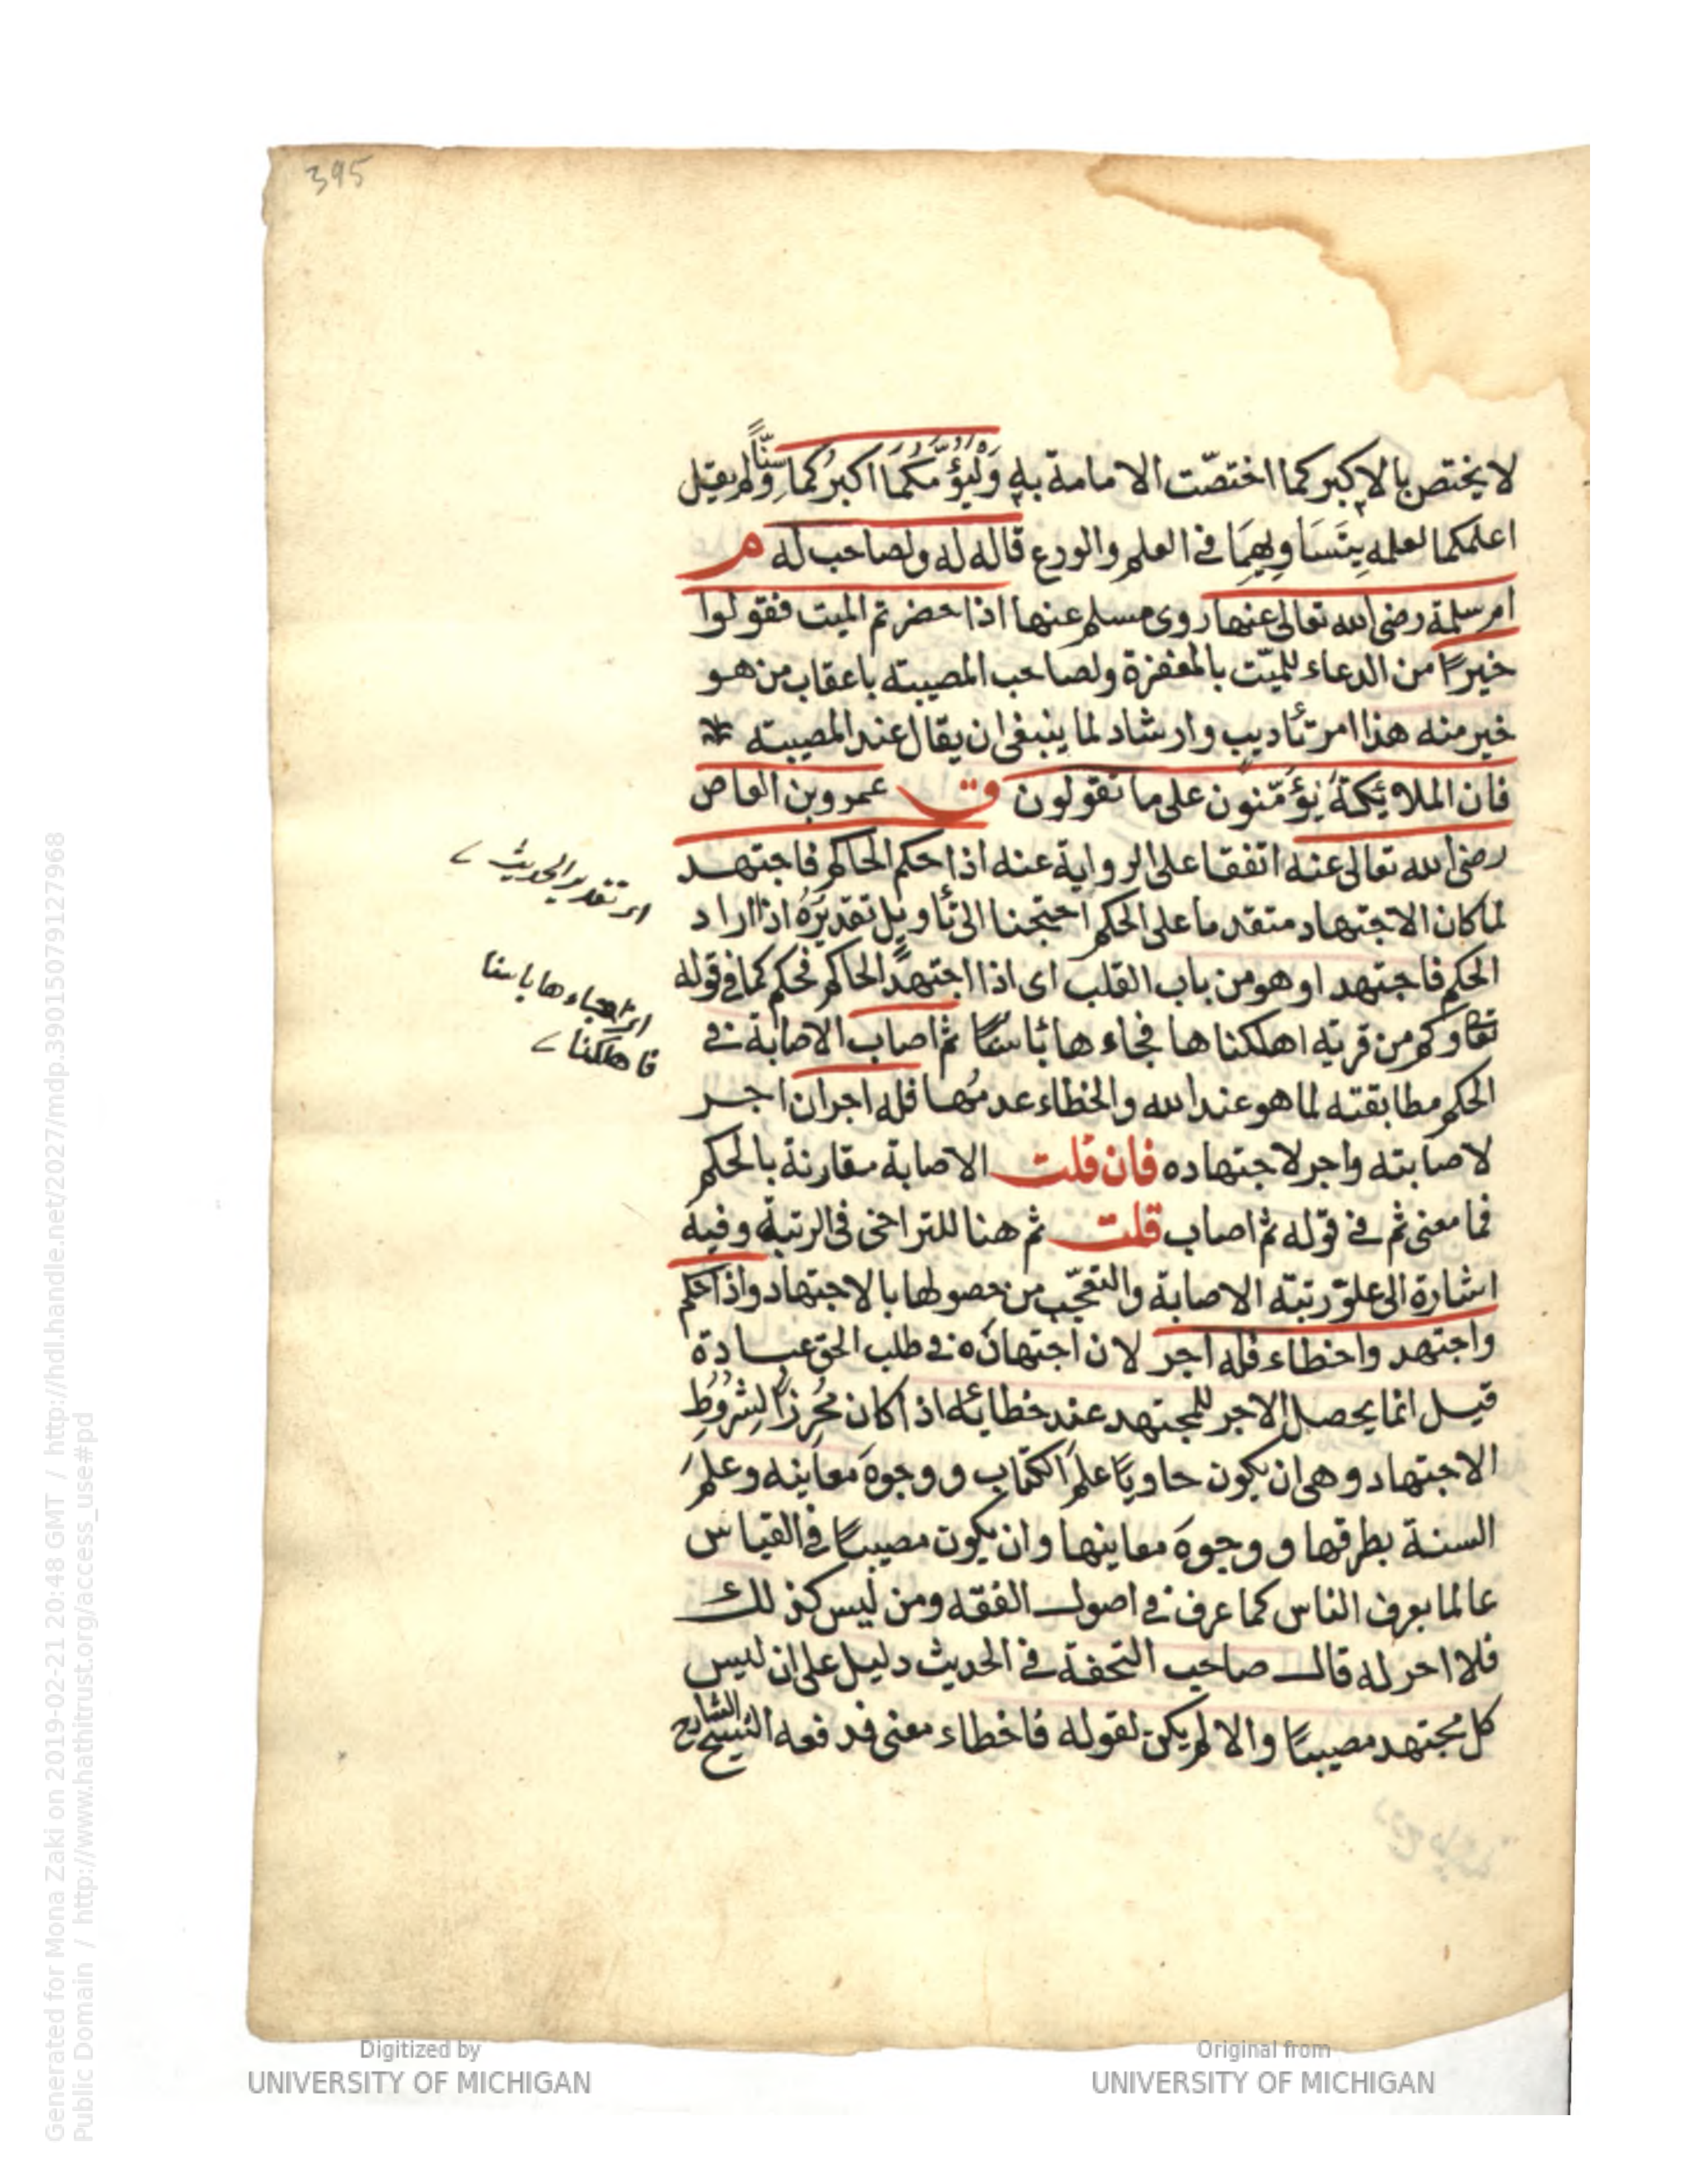 395
لا يختص بالاكبر كما اختصّت الامامة به وَلْيَؤُمَّكُمَا اكبرُكما سِنًّا ولم يقل
اعلمكما لعلمه بِتَسَاوِيهِمَا في العلم والورع قاله له ولصاحب له م
ام سلمة رضى الله تعالى عنها روى مسلم عنها اذا حضرتم الميت فقولوا
خيرًا من الدعاء للميّت بالمغفرة ولصاحب المصيبة باعقاب من هو
خير منه هذا امر تأديب وارشاد لما ينبغى ان يقال عند المصيبة
فان الملائكةَ يُؤَمّنون على ما تقولون ق عمرو بن العاص
رضى الله تعالى عنه اتفقا على الرواية عنه اذا حكم الحاكم فاجتهد
لما كان الاجتهاد متقدما على الحكم احتجنا الى تأويل تقديرُه اذا اراد
الحكم فاجتهد او هو من باب القلب اى اذا اجتهد الحاكم فحكم كما فى قوله
تعا وكم من قرية اهلكناها فجاءها بأسنا ثم اصاب الاصابة فى
الحكم مطابقته لما هو عند الله والخطاء عدمُها فله اجران اجر
لاصابته واجر لاجتهاده فان قلت الاصابة مقارنة بالحكم
فما معنى ثم فى قوله ثم اصاب قلت ثم هنا للتراخى فى الرتبة وفيه
اشارة الى علوّ رتبة الاصابة والتعجّب من حصولها بالاجتهاد واذا حكم
واجتهد واخطاء فله اجر لان اجتهادَه فى طلب الحق عبادة
قيل انما يحصل الاجر للمجتهد عند خطائه اذا كان مُحْرِزًا لِشُرُوطِ
الاجتهاد وهى ان يكون حاويًا علمَ الكتاب ووجوهَ معاينه وعلمَ
السنة بطرقها ووجوهَ معاينها وان يكون مصيبًا فى القياس
عالما بعرف الناس كما عرف فى اصول الفقه ومن ليس كذلك
فلا اجر له قال صاحب التحفة فى الحديث دليل على ان ليس
كل مجتهد مصيبًا والا لم يكن لقوله فاخطاء معنى فدفعه الشيخ الشارح
اى تقدير الحديث
اى جاءها باسنا
فاهلكنا
Digitized by
UNIVERSITY OF MICHIGAN
Original from
UNIVERSITY OF MICHIGAN
Generated for Mona Zaki on 2019-02-21 20:48 GMT / http://hdl.handle.net/2027/mdp.39015079127968
Public Domain / http://www.hathitrust.org/access_use#pd